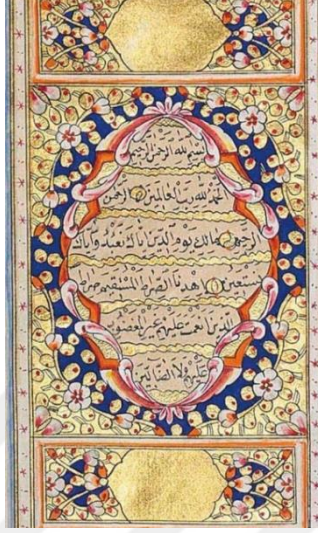 بسم الله الرحمن الرحيم
الحمد لله رب العالمين الرحمن
الرحيم مالك يوم الدين اياك نعبد واياك
نستعين اهدنا الصراط المستقيم صراط
الذين انعمت عليهم غير المغضوب
عليهم ولا الضالين